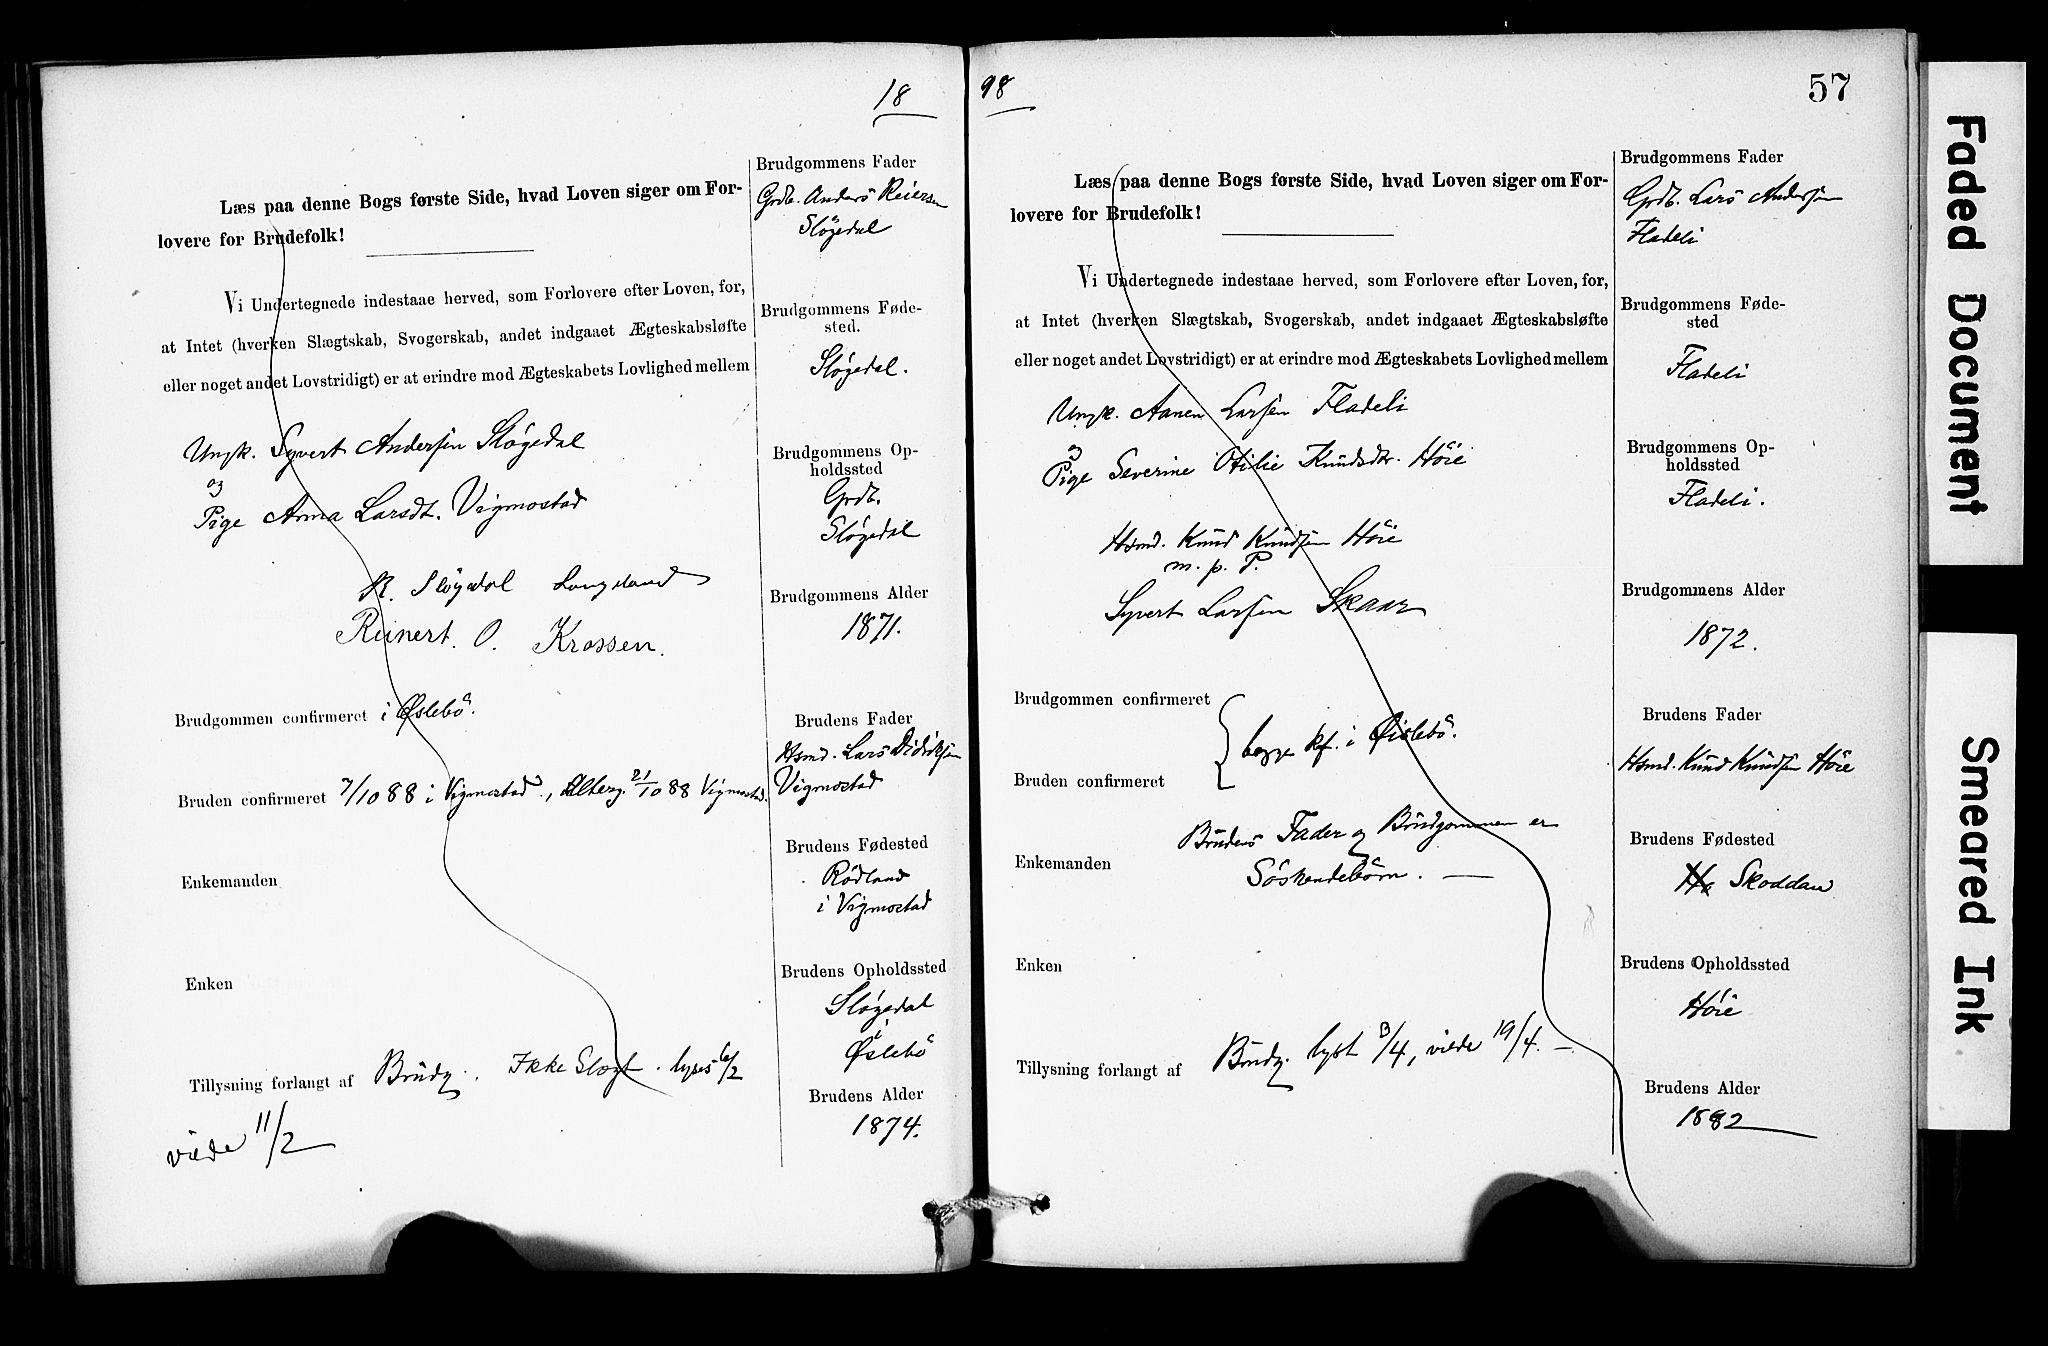 18
Læs paa denne Bogs første Side, hvad Loven siger om For-
lovere for Brudefolk!
Vi Undertegnede indestaae herved, som Forlovere efter Loven, for,
at Intet (hverken Slægtskab, Svogerskab, andet indgaaet Ægteskabsløfte
eller noget andet Lovstridigt) er at erindre mod Ægteskabets Lovlighed mellem
Ungk. Syvert Andersen Sløgedal
og
Pige Anna Larsdt. Vigmostad
R. Sløgedal Langeland
Reinert. O. Krossen.
Brudgommen confirmeret i Øslebö.
Bruden confirmeret 7/10 88 i Vigmostad., Alterg. 21/10 88 Vigmostad.
Enkemanden
Enken
Tillysning forlangt af Brudg. Ikke Slægt. lyses 6/2
viede 11/2
Brudgommens Fader
Grdb. Anders Reiersen
Sløgedal
Brudgommens Føde-
sted.
Sløgedal.
Brudgommens Op-
holdssted
Grdb.
Sløgedal
Brudgommens Alder
1871.
Brudens Fader
Hsmd. Lars Didriksen
Vigmostad
Brudens Fødested
Rödland
i Vigmostad
Brudens Opholdssted
Sløgedal
i
Øslebö
Brudens Alder
1874.
98
57
Læs paa denne Bogs første Side, hvad Loven siger om For-
lovere for Brudefolk!
Vi Undertegnede indestaae herved, som Forlovere efter Loven, for,
at Intet (hverken Slægtskab, Svogerskab, andet indgaaet Ægteskabsløfte
eller noget andet Lovstridigt) er at erindre mod Ægteskabets Lovlighed mellem
Ungk. Aanen Larsen Fladeli
og
Pige Severine Otilie Knudsdtr. Höie
Hsmd. Knud Knudsen Höie
m. p. P.
Syvert Larsen Skaar
Brudgommen confirmeret
begge kf. i Øislebö.
Bruden confirmeret
Brudens Fader og Brudgommen er
Enkemanden
Söskendebörn.
Enken
Tillysning forlangt af Brudg. lyst 3/4, viede 19/4.
Brudgommens Fader
Grdb. Lars Andersen
Fladeli
Brudgommens Føde-
sted
Fladeli
Brudgommens Op-
holdssted
Fladeli.
Brudgommens Alder
1872.
Brudens Fader
Hsmd. Knud Knudsen Höie
Brudens Fødested
Skoddan
Brudens Opholdssted
Höie
Brudens Alder
1882
Faded Document
Smeared Ink